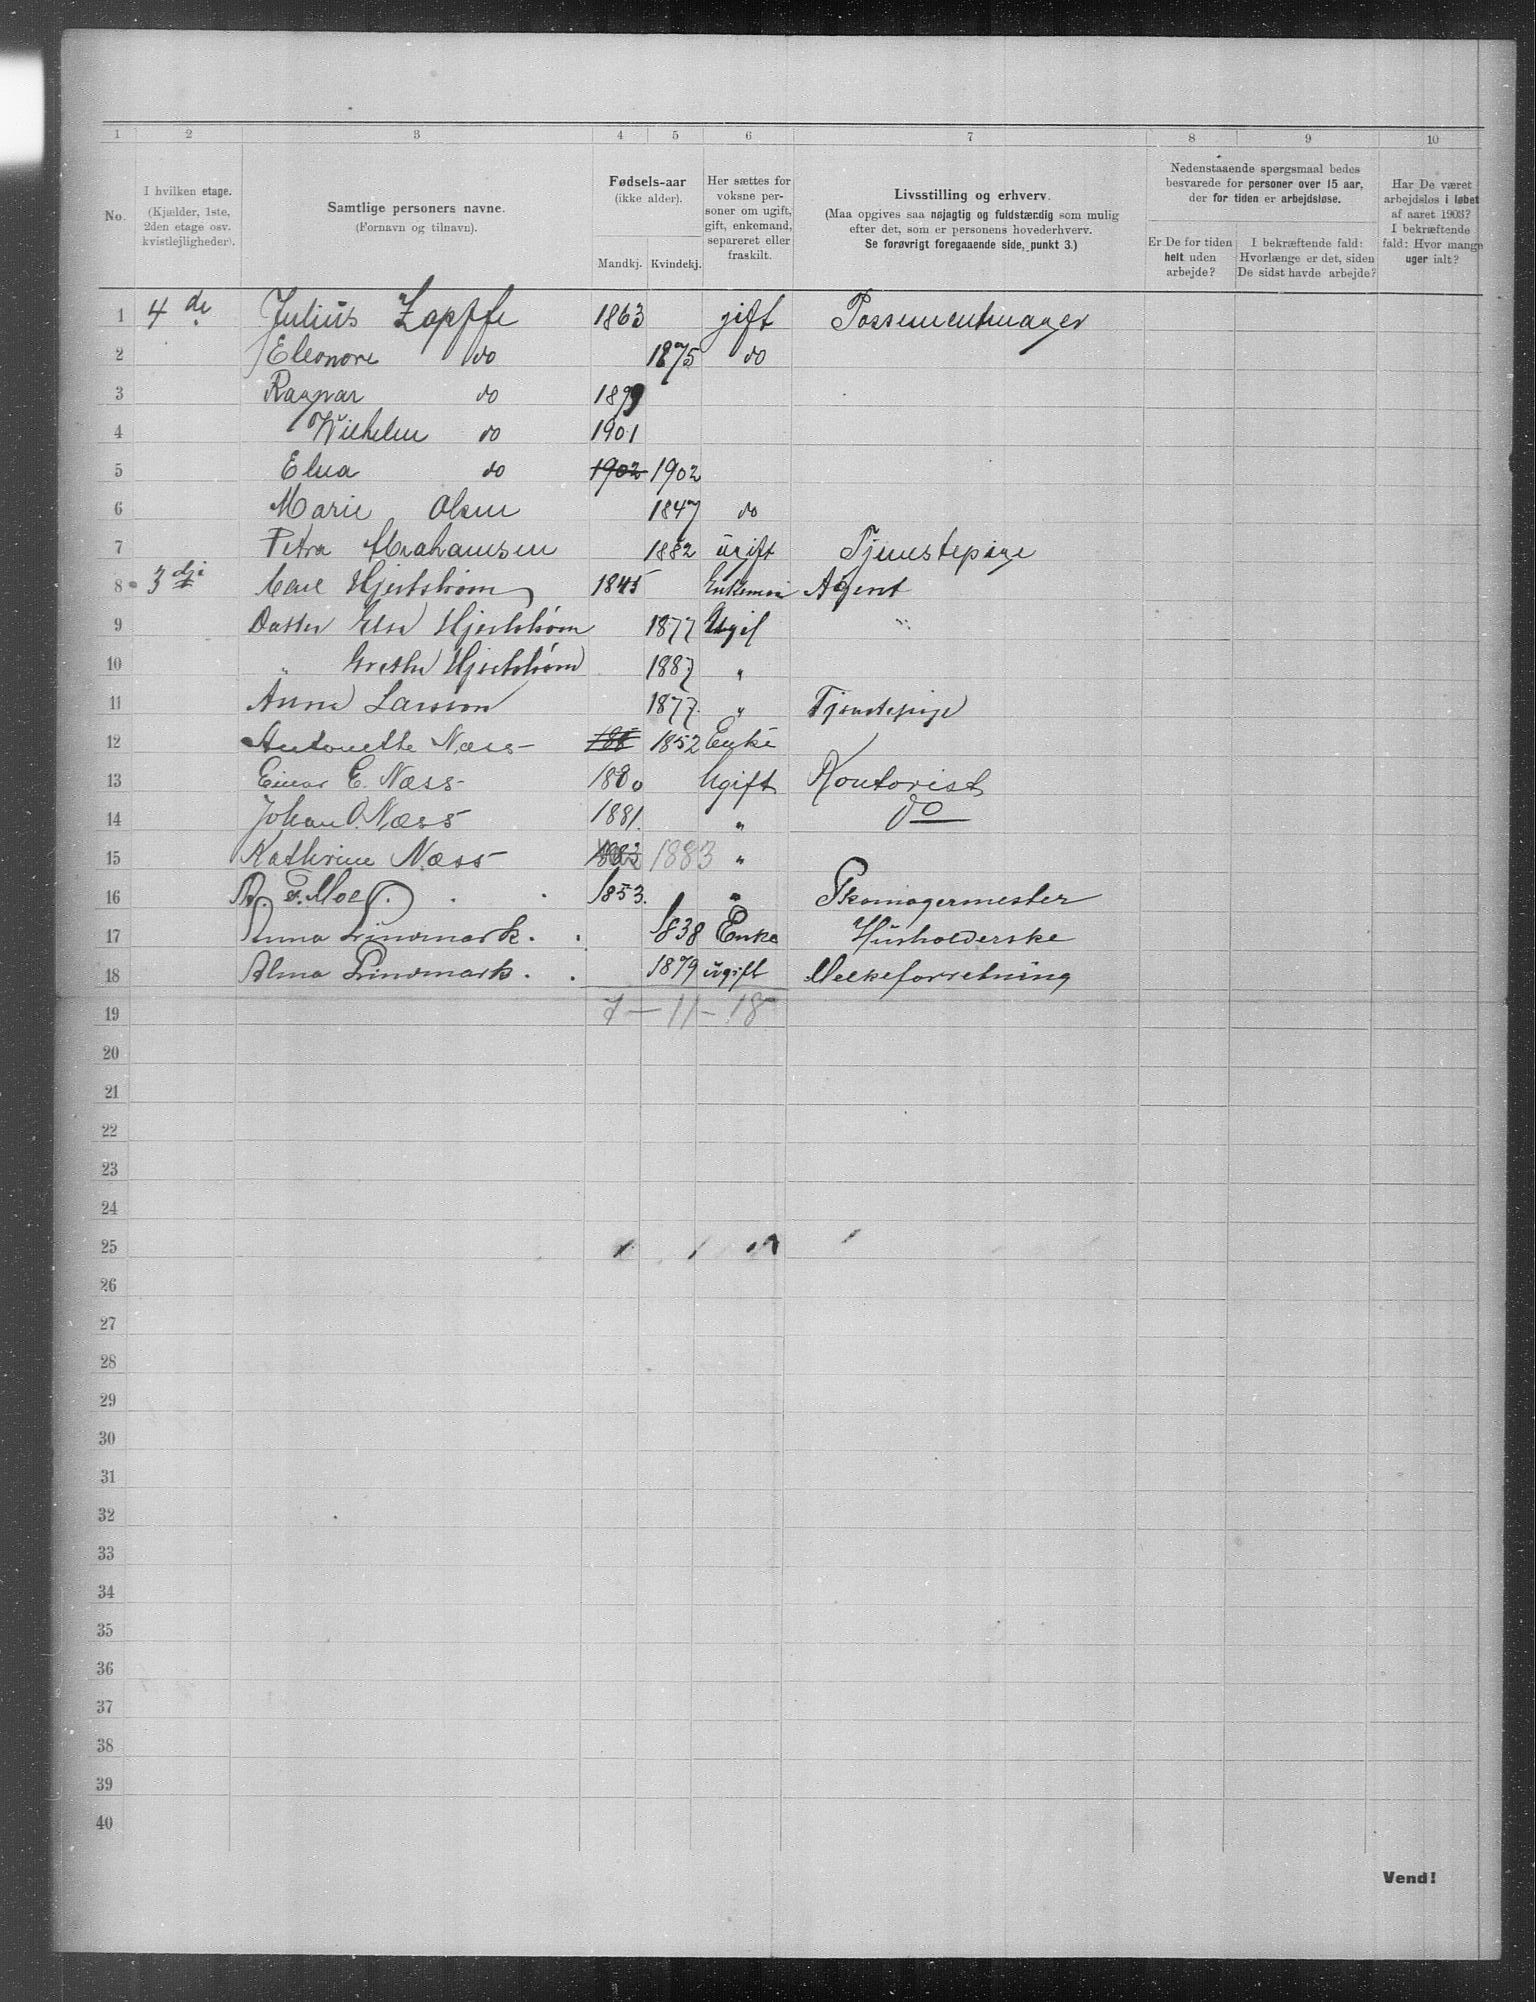 1 2 3 4 5 6 7 8 9 10
No.
I hvilken etage. (Kjælder, 1ste, 2den etage osv. kvistlejligheder).
Samtlige personers navne. (Fornavn og tilnavn).
Fødsels-aar (ikke alder). Mandkj. Kvindekj.
Her sættes for voksne personer om ugift, gift, enkemand, separeret eller fraskilt.
Livsstilling og erhverv. (Maa opgives saa nøjagtig og fuldstændig som mulig efter det, som er personens hovederhverv. Se forøvrigt foregaaende side, punkt 3.)
Nedenstaaende spørgsmaal bedes besvarede for personer over 15 aar, der for tiden er arbejdsløse.
Er De for tiden helt uden arbejde?
I bekræftende fald: Hvorlænge er det, siden De sidst havde arbejde?
Har De været arbejdsløs i løbet af aaret 1903? I bekræftende fald: Hvor mange uger ialt?
1 4de Julius Zapffe 1863 gift Possementmager
2 Eleonore do 1875 do
3 Ragnar do 1899
4 Wilhelm do 1901
5 Elna do 1902 1902
6 Marie Olsen 1847 do
7 Petra Abrahamsen 1882 ugift Tjenstepige
8 3dje Carl Hjertstrøm 1845 Enkeman Agent
9 Datter Elsa Hjertstrøm 1877 Ugif
10 " Grethe Hjertstrøm 1887 "
11 Anna Larsson 1877 " Tjenstepige
12 Antonette Næss 188 1852 Enke
13 Einar E. Næss 1880 Ugift Kontorist
14 Johan O. Næss 1881. " do
15 Kathrine Næss 1883 "
16 A. F. Moe 1853. " Skomagermester
17 Anna Lindmark. 1838 Enke Husholderske
18 Alma Lindmark. 1879 ugift Melkeforretning
19 7 — 11 — 18
20
21
22
23
24
25
26
27
28
29
30
31
32
33
34
35
36
37
38
39
40
Vend!